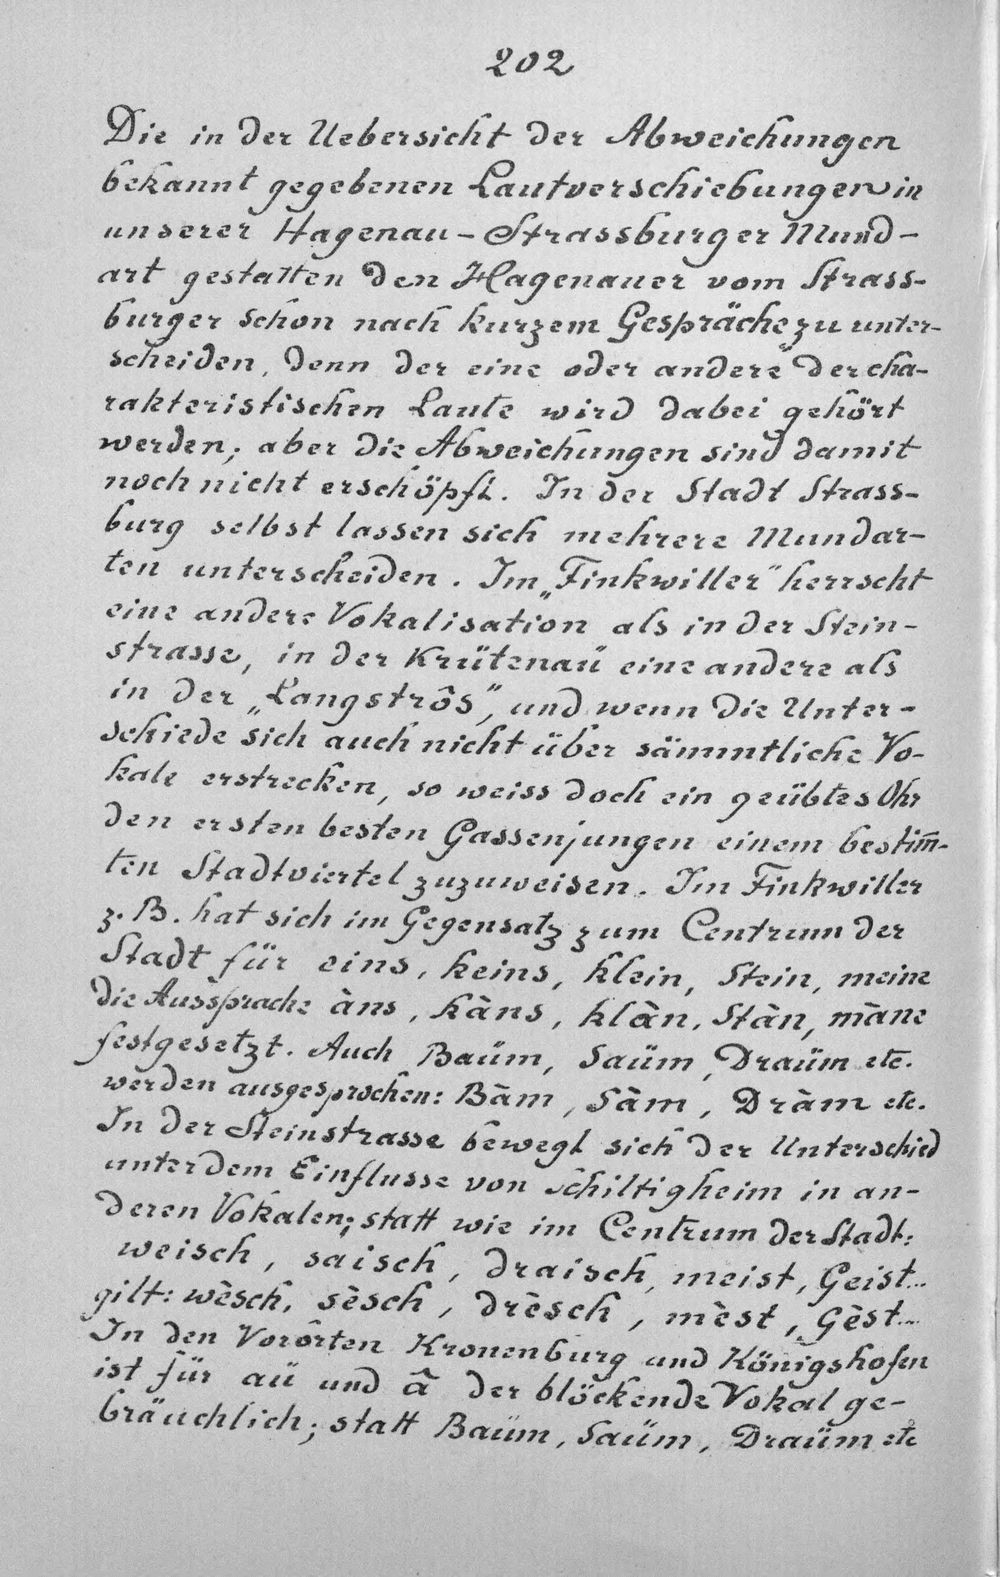 202
Die in der Uebersicht der Abweichungen
bekannt gegebenen Lautverschiebungen in
unserer Hagenau-Strassburger Mund-
art gestatten den Hagenauer vom Strass-
burger schon nach kurzem Gespräche zu unter-
scheiden, denn der eine oder andere der cha-
rakteristischen Laute wird dabei gehört
werden; aber die Abweichungen sind damit
noch nicht erschöpft. In der Stadt Strass-
burg selbst lassen sich mehrere Mundar-
ten unterscheiden. Im „Finkwiller“ herrscht
eine andere Vokalisation als in der Stein-
strasse, in der Krütenaü eine andere als
in der „Langstrôs“, und wenn die Unter-
schiede sich auch nicht über sämmtliche Vo-
kale erstrecken, so weiss doch ein geübtes Ohr
den ersten besten Gassenjungen einem bestim̅-
ten Stadtviertel zuzuweisen. Im Finkwiller
z. B. hat sich im Gegensatz zum Centrum der
Stadt für eins, keins, klein, Stein, meine
die Aussprache àns, kàns, klàn, Stàn, màne
festgesetzt. Auch Baüm, Saüm, Draüm etc.
werden ausgesprochen: Bàm, Sàm, Dràm etc.
In der Steinstrasse bewegt sich der Unterschied
unter dem Einflusse von Schiltigheim in an-
deren Vokalen; statt wie im Centrum der Stadt:
weisch, saisch, draisch, meist, Geist...
gilt: wèsch, sèsch, drèsch, mèst, Gèst...
In den Vorôrten Kronenburg und Königshofen
ist für aü und â der blöckende Vokal ge-
bräuchlich; statt Baüm, Saüm, Draüm etc